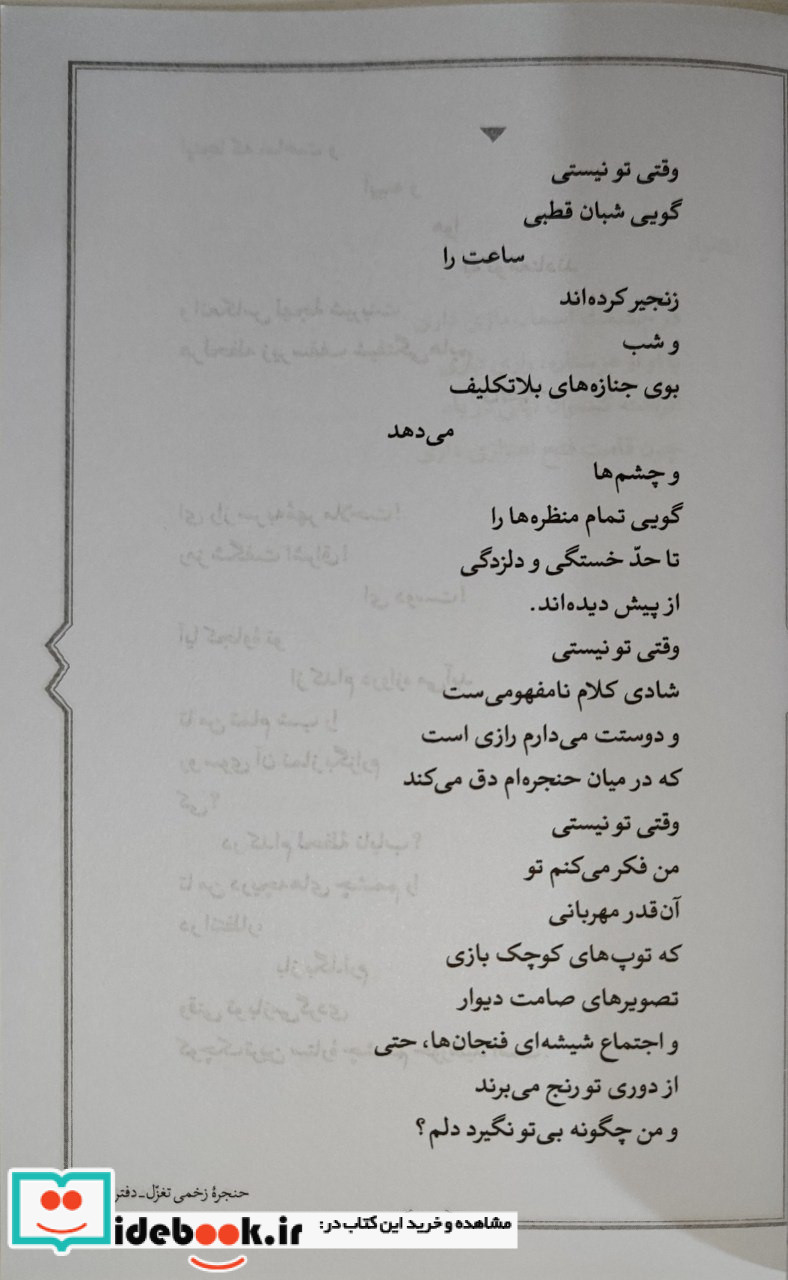 وقتی تو نیستی
گویی شبان قطبی
ساعت را
زنجیر کرده‌اند
و شب
بوی جنازه‌های بلاتکلیف
می‌دهد
و چشم‌ها
گویی تمام منظره‌ها را
تا حدّ خستگی و دلزدگی
از پیش دیده‌اند.
وقتی تو نیستی
شادی کلام نامفهومی‌ست
و دوستت می‌دارم رازی است
که در میان حنجره‌ام دق می‌کند
وقتی تو نیستی
من فکر می‌کنم تو
آن‌قدر مهربانی
که توپ‌های کوچک بازی
تصویرهای صامت دیوار
و اجتماع شیشه‌ای فنجان‌ها، حتی
از دوری تو رنج می‌برند
و من چگونه بی‌تو نگیرد دلم؟
حنجرهٔ زخمی تغزّل-دفتر
مشاهده و خرید این کتاب در:
idebook.ir